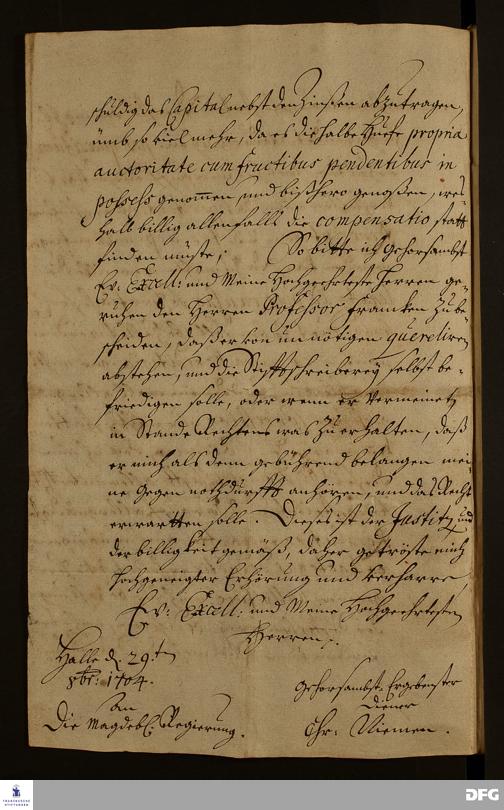 schuldig das Capital nebst den Zinßen abzutragen,
umb so viel mehr, da er die halbe Huefe propria
auctoritate cum fructibus pendentibus in
possess genommen und bißhero genoßen, wes-
halb billig allenfalls die compensatio statt
finden müste; So bitte ich gehorsambst
Ev. Excell: und Meine Hochgeehrteste Herren ge-
ruhen den Herren Professor Francken zu be-
scheiden, daß er von unnötigen quereliren
abstehen, und die Stifftschreiberey selbst be-
friedigen solle, oder wenn er vermeinet,
in Stande Rechtens was zu erhalten, daß
er mich als denn gebührend belangen mei-
ne gegen nothdurfft anhören, und das Recht
erwartten solle. Dieses ist der Justitz und
der billigkeit gemäß, daher getröste mich
hochgeneigter Erhörung und verharre
Ev: Excell: und Meine Hochgeehrtesten
Herren
Halle d. 29.t
8br: 1704.
gehorsambst Ergebenster
diener
An
Die Magdeb. Regierung.
Chr: Niemen.
FRANCKESCHE STIFTUNGEN
DFG